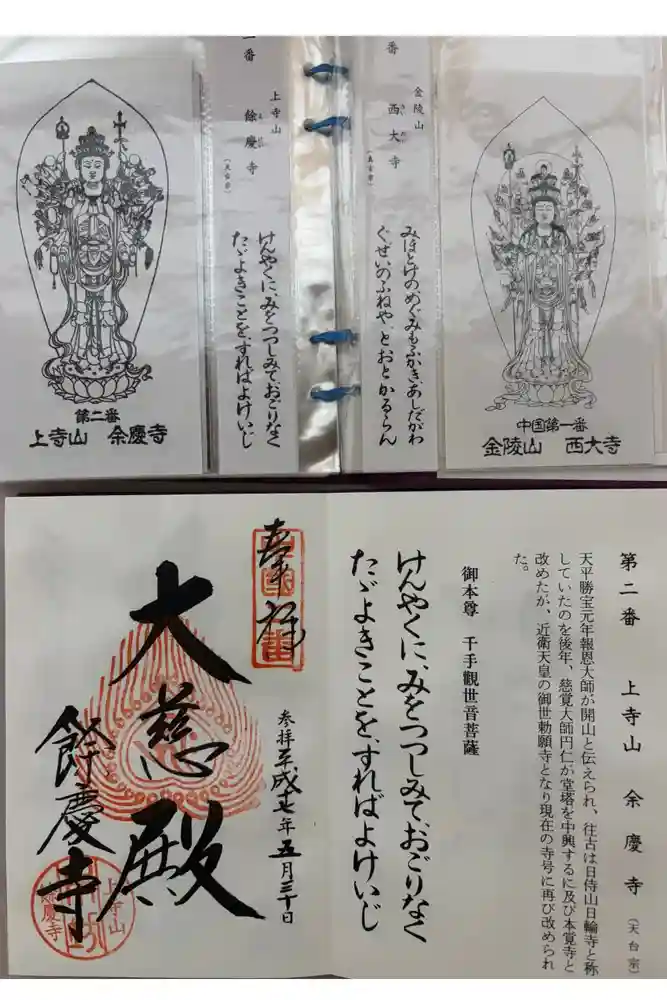 番
金陵山
西大寺
(真言宗)
みほとけの、めぐみもふかき、あしだがわ
ぐせいのふねや、とおとかるらん
中国第一番
金陵山 西大寺
番
上寺山
餘慶寺
(天台宗)
けんやくに、みをつつしみて、おごりなく
たゞよきことを、すればよけいじ
第二番
上寺山 余慶寺
第二番 上寺山 余慶寺 (天台宗)
天平勝宝元年報恩大師が開山と伝えられ、往古は日待山日輪寺と称
していたのを後年、慈覚大師円仁が堂塔を中興するに及び本覚寺と
改めたが、近衛天皇の御世勅願寺となり現在の寺号に再び改められ
た。
御本尊 千手觀世音菩薩
けんやくに、みをつつしみて、おごりなく
たゞよきことを、すればよけいじ
奉拝
参拝平成十七年五月三十日
大慈殿
餘慶寺
上寺山
餘慶寺